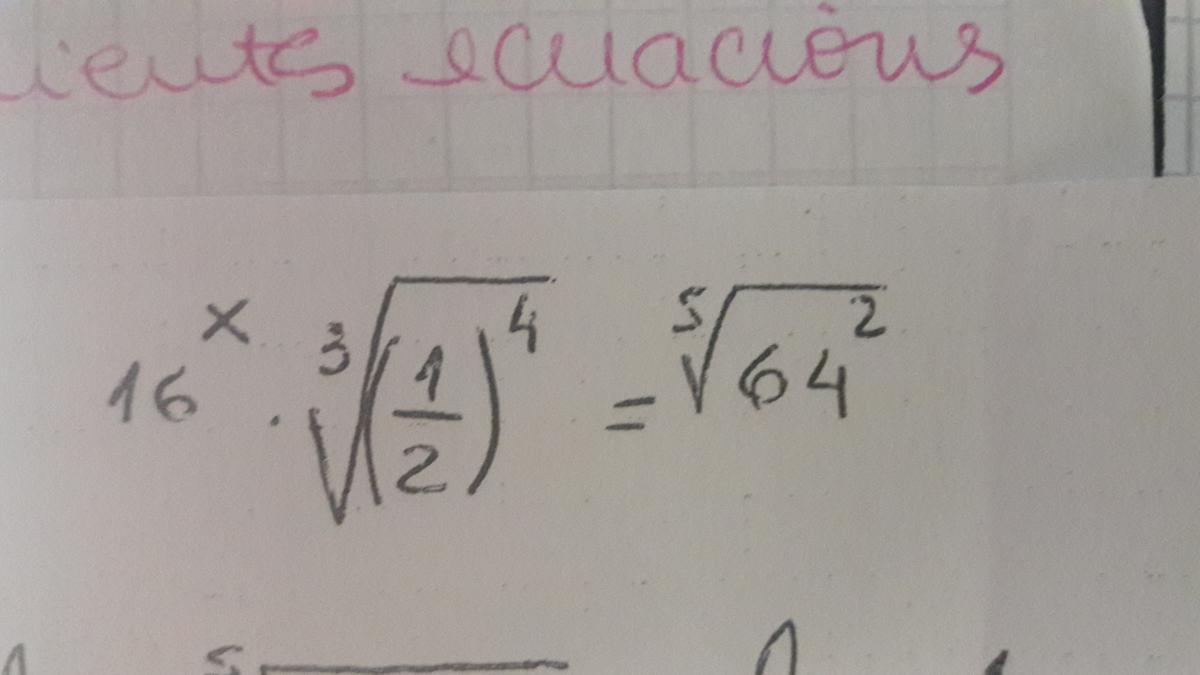 ientes ecuacións
16^x · ∛((1/2)^4) = ⁵√(64^2)
5